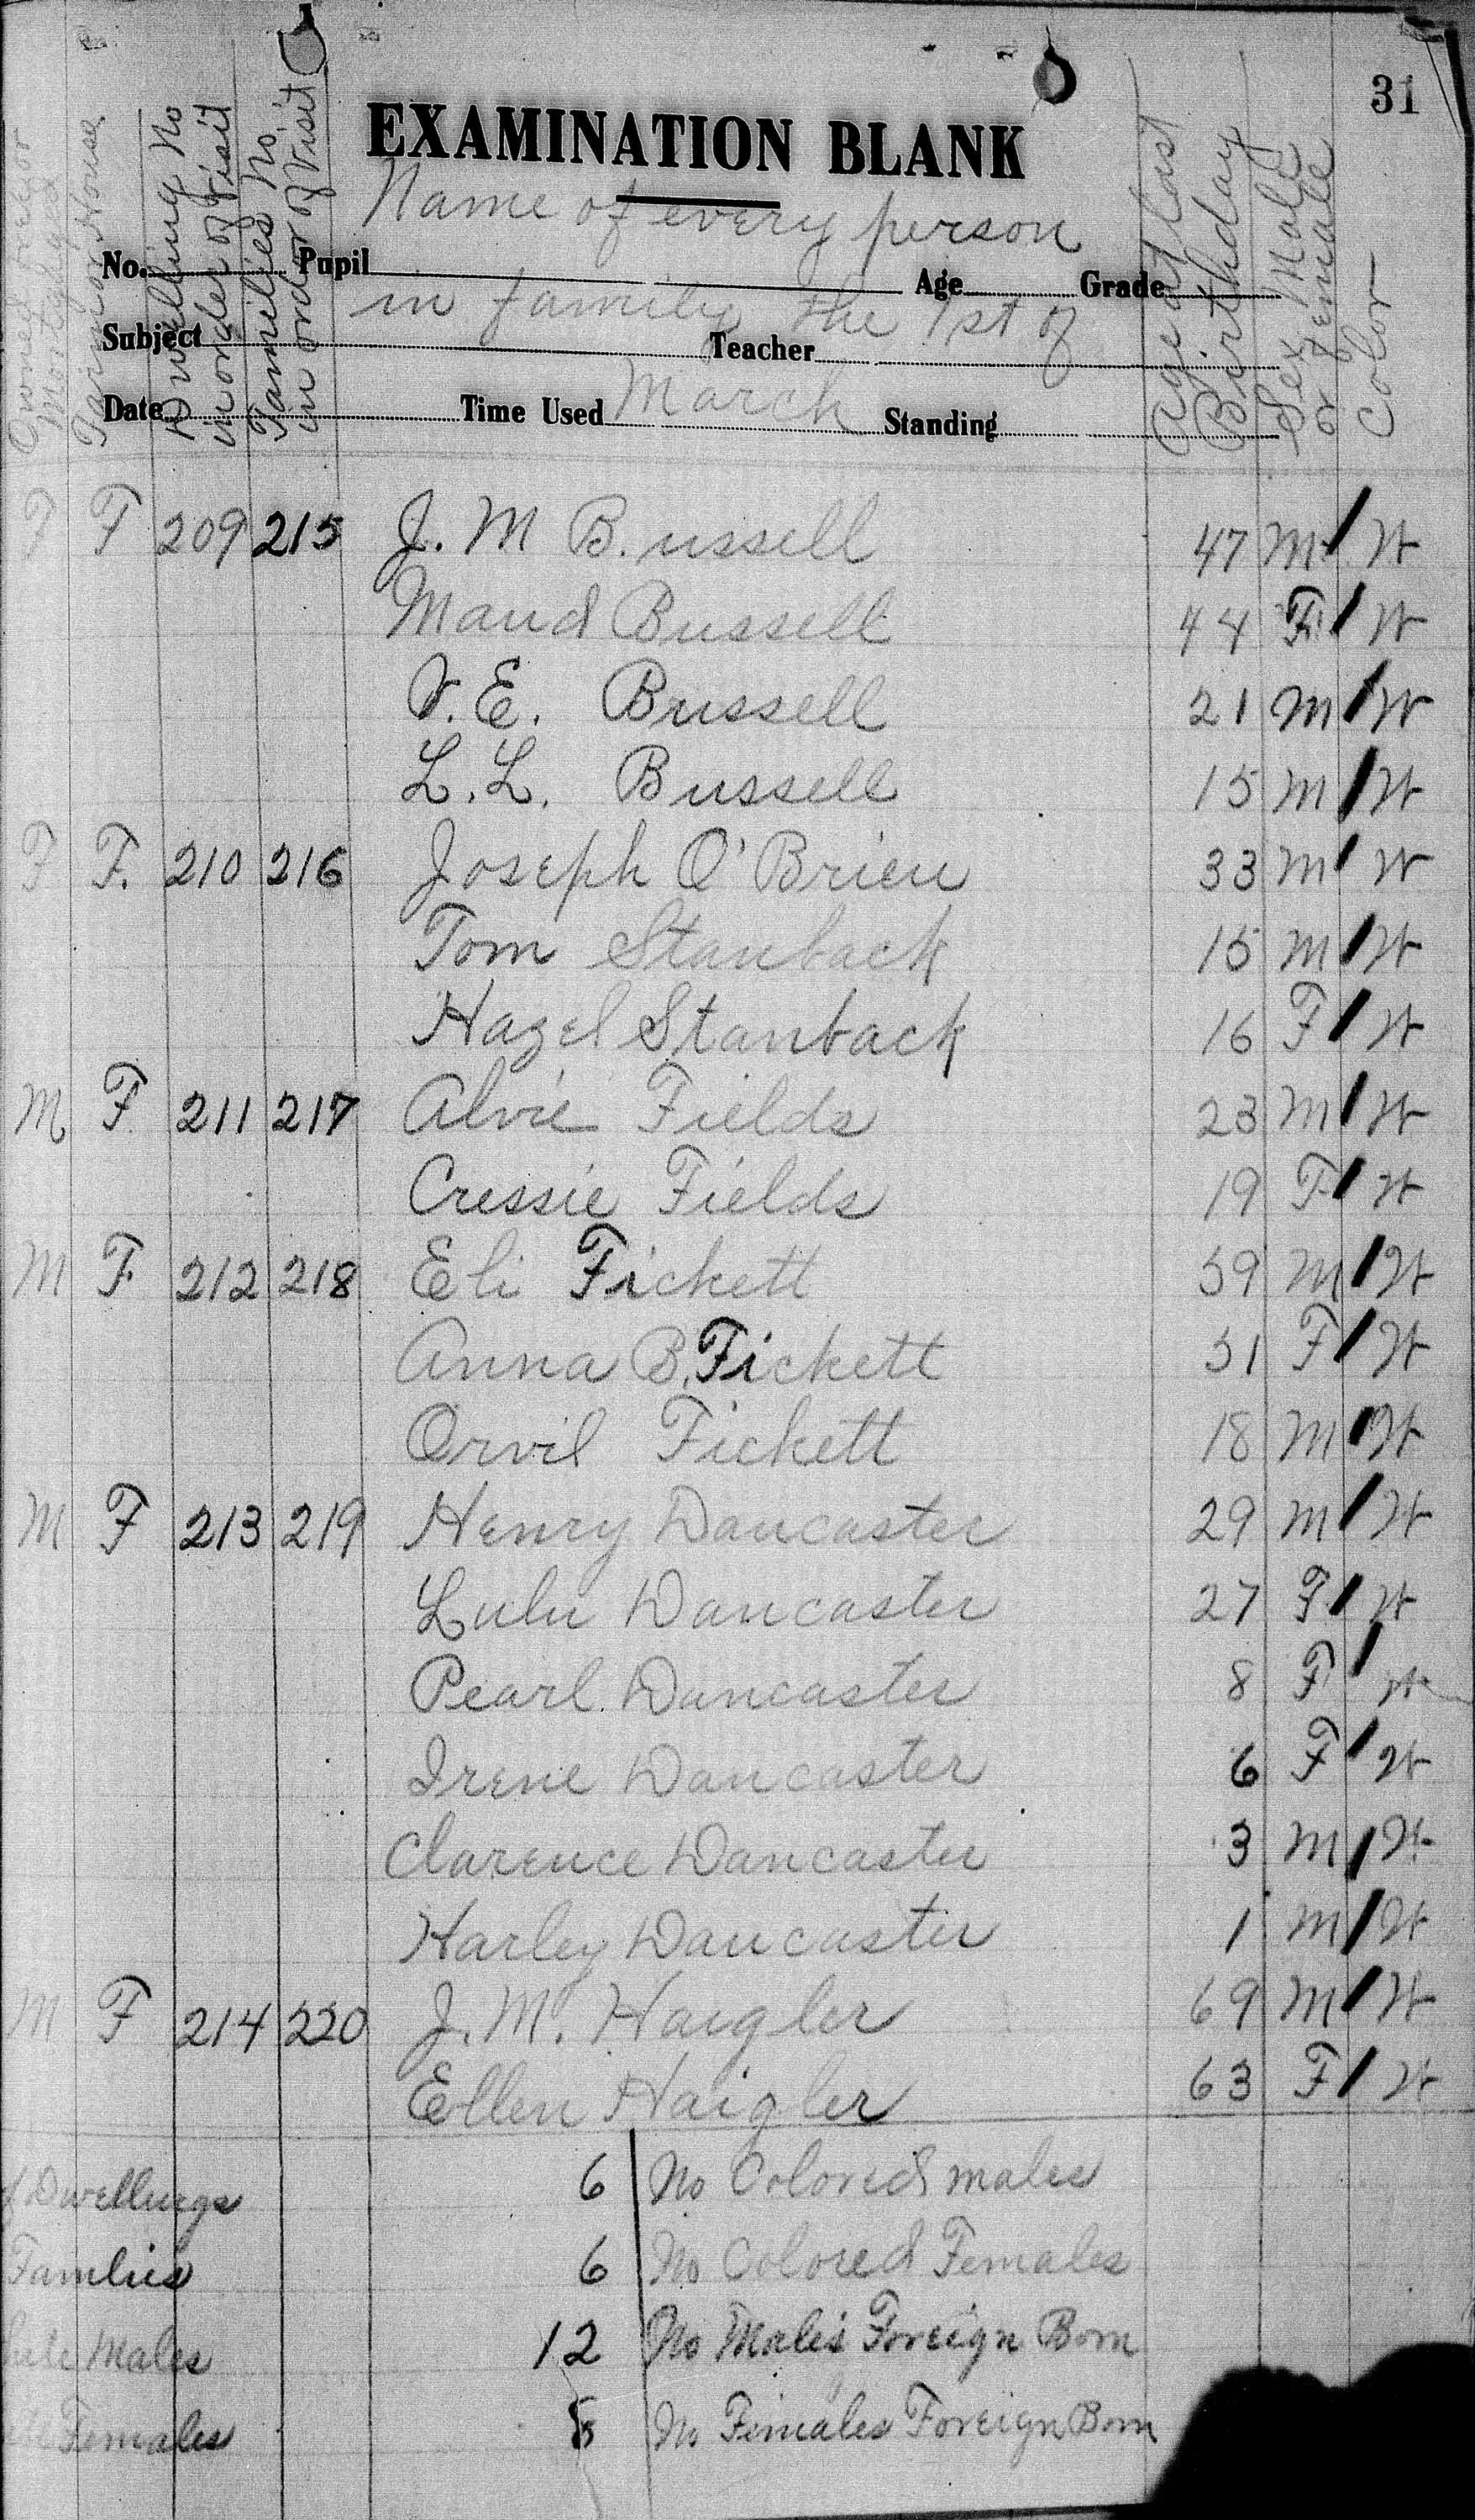 31
EXAMINATION BLANK
Owned or
Mortgaged
Farm or House
Dwelling No
in order of Visit
Families No.
in order of Visit
Name of every person
in family the 1st of
March
Age at last
Birthday
Sex Male
or Female
Color
No. Pupil Age Grade
Subject Teacher
Date Time Used Standing
F F 209 215 J. M B.ussell 47 M W
Maud Bussell 44 F W
V. E. Bussell 21 M W
L. L. Bussell 15 M W
F F. 210 216 Joseph O'Brien 33 M W
Tom Stanback 15 M W
Hazel Stanback 16 F W
M F 211 217 Alvie Fields 23 M W
Cressie Fields 19 F W
M F 212 218 Eli Fickett 59 M W
Anna B. Fickett 51 F W
Orvil Fickett 18 M W
M F 213 219 Henry Dancaster 29 M W
Lulu Dancaster 27 F W
Pearl Dancaster 8 F W
Irene Dancaster 6 F W
Clarence Dancaster 3 M W
Harley Dancaster 1 M W
M F 214 220 J. M. Haigler 69 M W
Ellen Haigler 63 F W
Dwellings 6 No Colored males
Families 6 No Colored Females
Males 12 No Males Foreign Born
Females 8 No Females Foreign Born